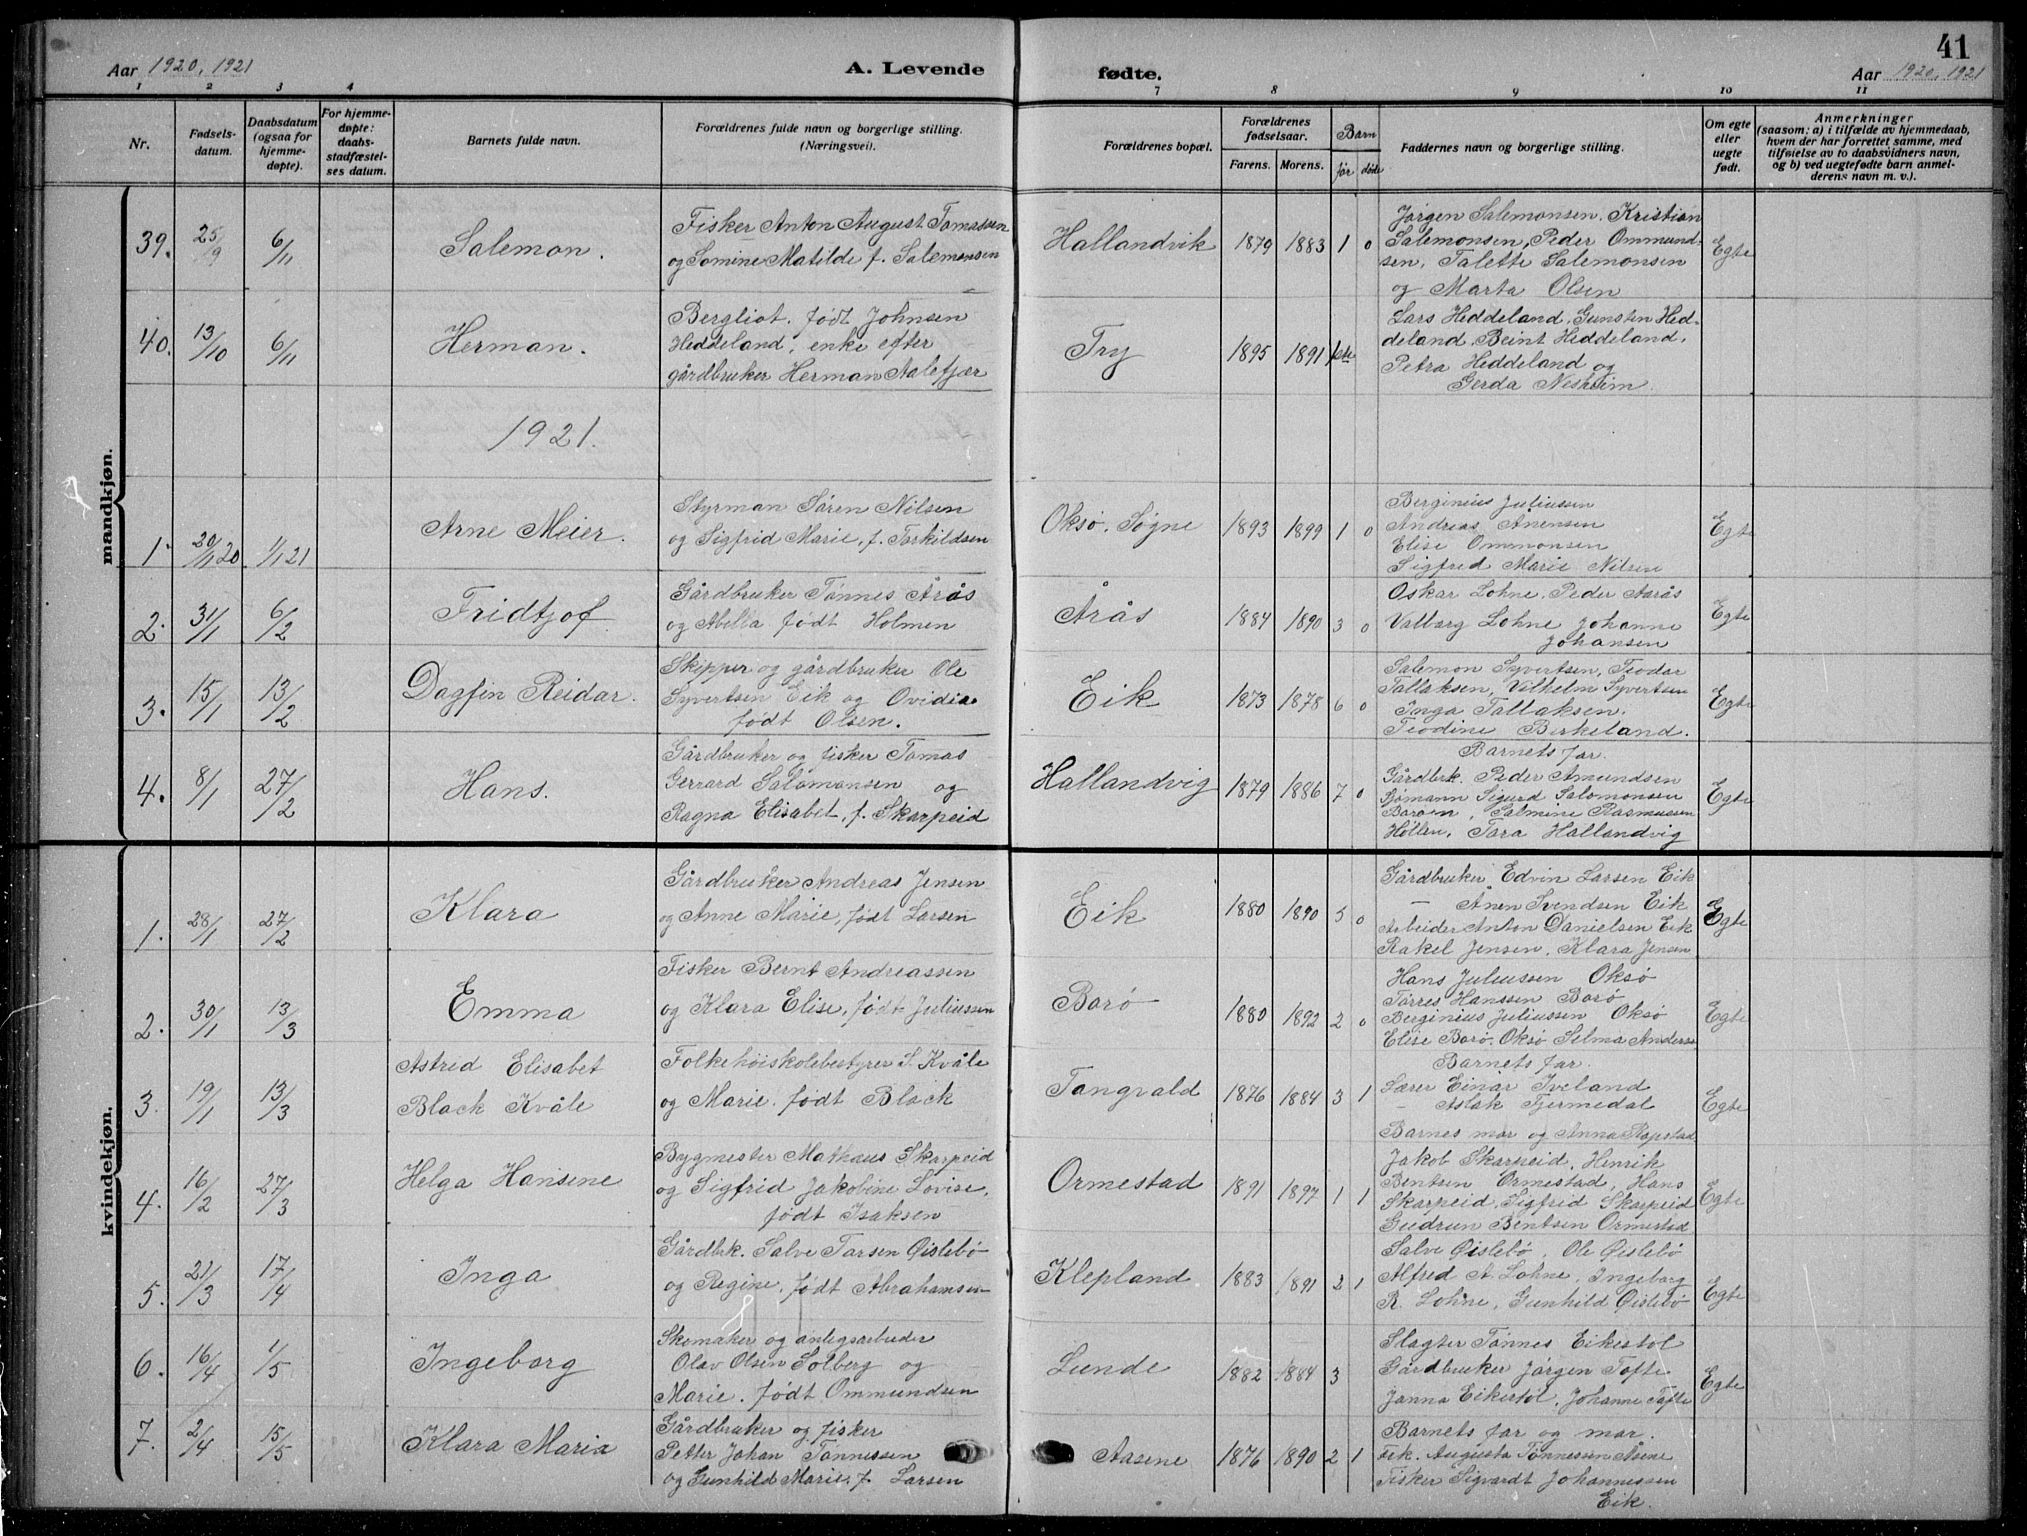 41
Aar 1920, 1921 A. Levende fødte. Aar 1920, 1921
1 2 3 4 7 8 9 10 11
Nr.
Fødselsdatum.
Daabsdatum (ogsaa for hjemmedøpte).
For hjemmedøpte: daabsstadfæstelses datum.
Barnets fulde navn.
Forældrenes fulde navn og borgerlige stilling. (Næringsvei).
Forældrenes bopæl.
Forældrenes fødselsaar.
Farens. Morens.
Barn
før døde
Faddernes navn og borgerlige stilling.
Om egte eller uegte født.
Anmerkninger
(saasom: a) i tilfælde av hjemmedaab,
hvem der har forrettet samme, med
tilføielse av to daabsvidners navn,
og b) ved uegtefødte barn anmelderens navn m. v.).
mandkjøn.
39. 25/9 6/11 Salemon.
Fisker Anton August Tomassen
og Somine Matilde f. Salemonsen
Hallandvik 1879 1883 1 0
Jørgen Salemonsen. Kristian
Salemonsen, Peder Ommund-
sen, Talette Salemonsen
og Marta Olsen
Egte
40. 13/10 6/11 Herman.
Bergliot. født Johnsen
Heddeland, enke efter
gårdbruker Herman Aalefjær
Try 1895 1891
Lars Heddeland, Gunsten Hed-
deland, Beint Heddeland,
Petra Heddeland og
Gerda Nesheim.
1921.
1. 20/11 20 1/1 21 Arne Meier.
Styrman Søren Nilsen
og Sigfrid Marie, f. Torkildsen
Oksø, Søgne 1893 1899 1 0
Berginius Juliussen
Andreas Anensen
Elise Ommonsen
Sigfred Marie Nilsen
Egte
2. 31/1 6/2 Fridtjof
Gårdbruker Tønnes Årås
og Abella født Holmen
Årås 1884 1890 3 0
Oskar Lohne, Peder Aarås
Valborg Lohne Johanne
Johansen
Egte
3. 15/1 13/2 Dagfin Reidar.
Skipper og gårdbruker Ole
Syvertsen Eik og Ovidia
født Olsen.
Eik 1873 1878 6 0
Salemon Syvertsen, Teodor
Tallaksen, Vilhelm Syvertsen
Inga Tallaksen.
Teodine Birkeland.
Egte
4. 8/1 27/2 Hans.
Gårdbruker og fisker Tomas
Gerrard Salomonsen og
Ragna Elisabet, f. Skarpeid
Hallandvig 1879 1886 7 0
Barnets far.
Gårdbrk. Peder Amundsen
Sjømann Sigurd Salomonsen
Borøen, Salmine Rasmussen
Høllen, Tora Hallandvig
Egte
kvindekjøn.
1. 28/1 27/2 Klara
Gårdbruker Andreas Jensen
og Anne Marie, født Larsen
Eik 1880 1890 5 0
Gårdbruker Edvin Larsen Eik
— Anen Svendsen Eik
Arbeider Anton Danielsen Eik
Rakel Jensen, Klara Jensen
Egte
2. 30/1 13/3 Emma
Fisker Bernt Andreassen
og Klara Elise, født Juliussen
Borø 1880 1892 2 0
Hans Juliussen Oksø
Torres Hanssen Borø
Berginius Juliussen Oksø
Elise Borø, Oksø Selma Anderss
Egte
3. 19/1 13/3 Astrid Elisabet
Black Kvåle
Folkehøiskolebestyrer S. Kvåle
og Marie, født Black
Tangvald 1876 1884 3 1
Barnets far
Lærer Einar Iveland
— Aslak Tjermedal
Barnes mor og Anna Ropstad
Egte
4. 16/2 27/3 Helga Hansine
Bygmester Mathæus Skarpeid
og Sigfrid Jakobine Lovise,
født Isaksen
Ormestad 1891 1897 1 1
Jakob Skarpeid, Henrik
Bentsen Ormestad, Hans
Skarpeid, Sigfrid Skarpeid
Gudrun Bentsen Ormestad
Egte
5. 21/3 17/4 Inga
Gårdbrk. Salve Tarsen Øislebø
og Regine, født Abrahamsen
Klepland 1883 1891 2 1
Salve Øislebø, Ole Øislebø
Alfred A. Lohne, Ingeborg
R. Lohne, Gunhild Øislebø
Egte
6. 16/4 1/5 Ingeborg
Skomaker og anlegsarbeider
Olav Olsen Solberg og
Marie, født Ommundsen
Lunde 1882 1884 3
Slagter Tønnes Eikestøl
Gårdbruker Jørgen Tofte
Janna Eikestøl, Johanne Tofte
Egte
7. 2/4 15/5 Klara Maria
Gårdbruker og fisker
Petter Johan Tønnessen
og Gunhild Marie, f. Larsen
Aasene 1876 1890 2 1
Barnets far og mor.
Frk. Augusta Tønnessen Åsene
Fisker Sigvardt Johannessen
Eik.